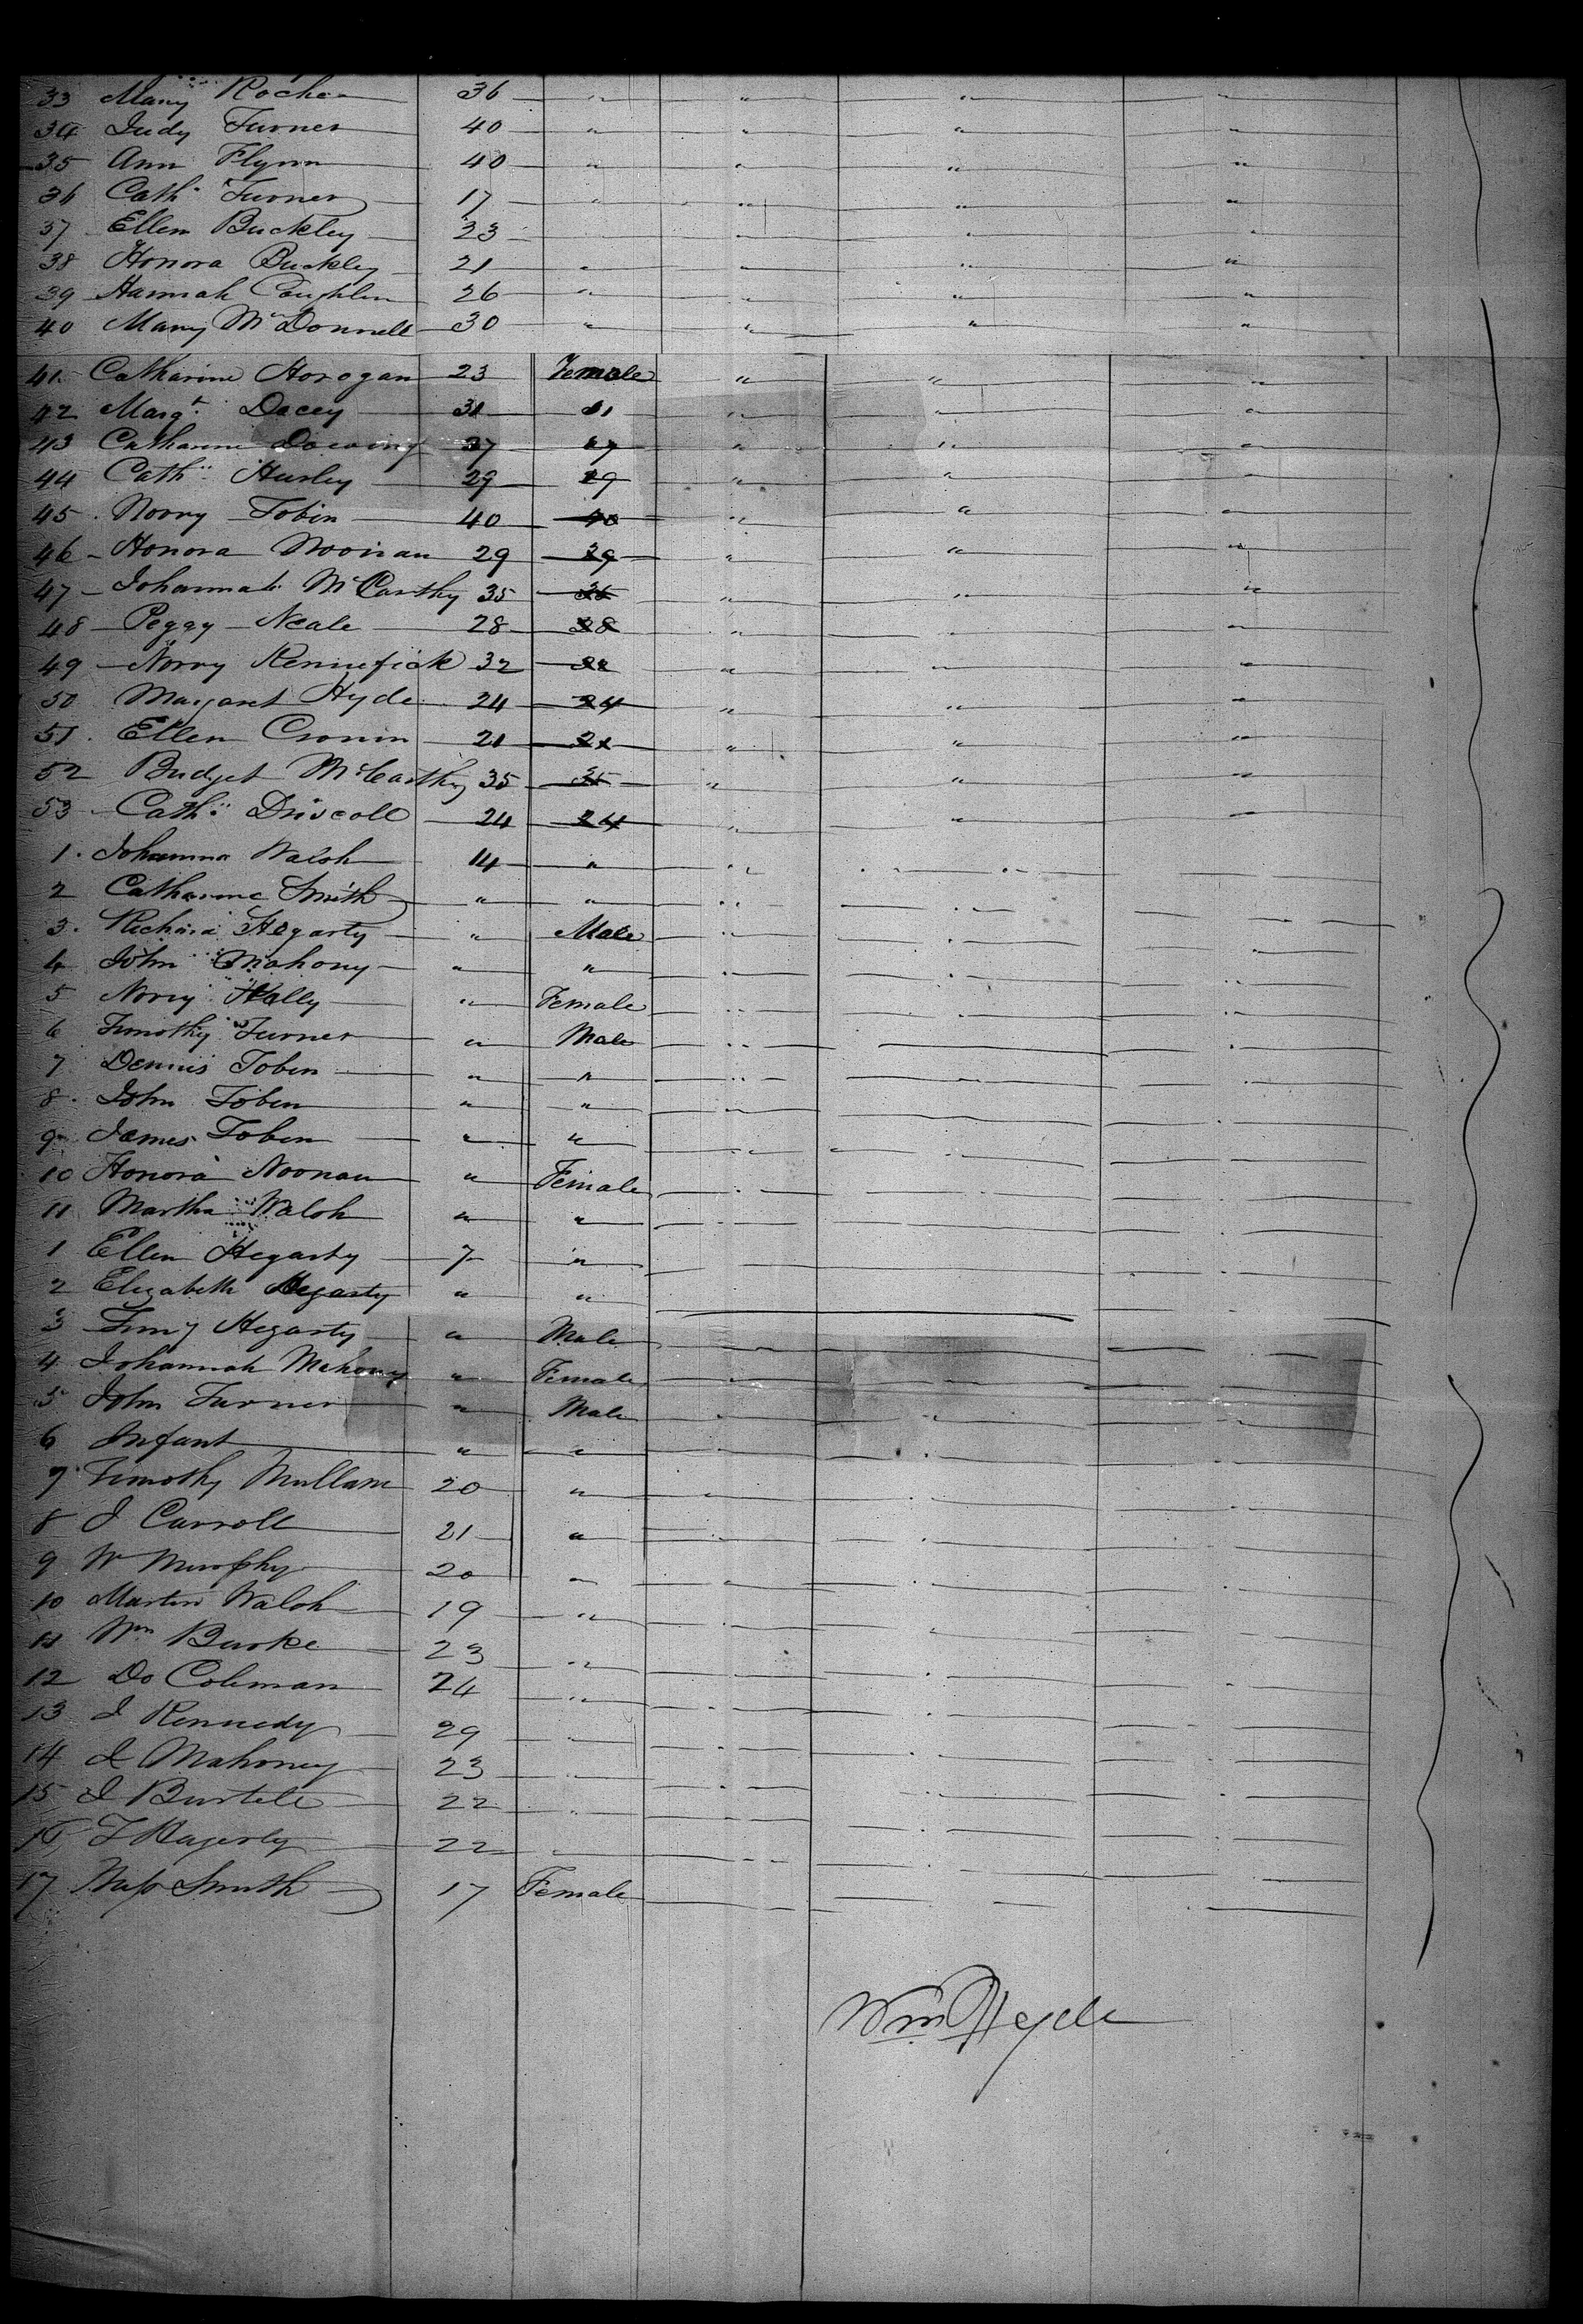 33 Mary Roche 36 " " " "
34 Judy Turner 40 " " " "
35 Ann Flynn 40 " " " "
36 Cath. Turner 17 " " " "
37 Ellen Buckley 23 " " "
38 Honora Buckley 21 " " " "
39 Hannah Coughlin 26 " " " "
40 Mary McDonnell 30 " " " "
41 Catharine Horogan 23 Female " " "
42 Margt. Dacey 31 " " "
43 Catharine 37 " " "
44 Cath. Hurley 29 29 " " "
45 Norry Tobin 40 40 " " "
46 Honora Noonan 29 29 " " "
47 Johannah McCarthy 35 35 " " "
48 Peggy Neale 28 28 " " "
49 Norry Kennefick 32 32 " " "
50 Margaret Hyde 24 24 " " "
51 Ellen Cronin 21 21 " " "
52 Bridget McCarthy 35 35 " " "
53 Cath. Driscoll 24 24 " " "
1 Johanna Walsh 14 " "
2 Catharine Smith " " "
3 Richard Hegarty " Male "
4 John Mahony " " "
5 Norry Hally " Female "
6 Timothy Turner " Male "
7 Dennis Tobin " " "
8 John Tobin " "
9 James Tobin " "
10 Honora Noonan " Female
11 Martha Walsh " "
1 Ellen Hegarty 7 "
2 Elizabeth Hegarty " "
3 Hegarty " Male
4 Johannah Mahony " Female
5 John Turner " Male
6 Infant " "
7 Timothy Mullane 20 "
8 J Carroll 21 "
9 W Murphy 20 "
10 Martin Walsh 19 "
11 Wm Burke 23 "
12 Do Coleman 24 "
13 J Kennedy 29 "
14 J Mahoney 23 "
15 J 22 "
16 T Hagerty 22
17 Miss Smith 17 Female
Wm Hyde